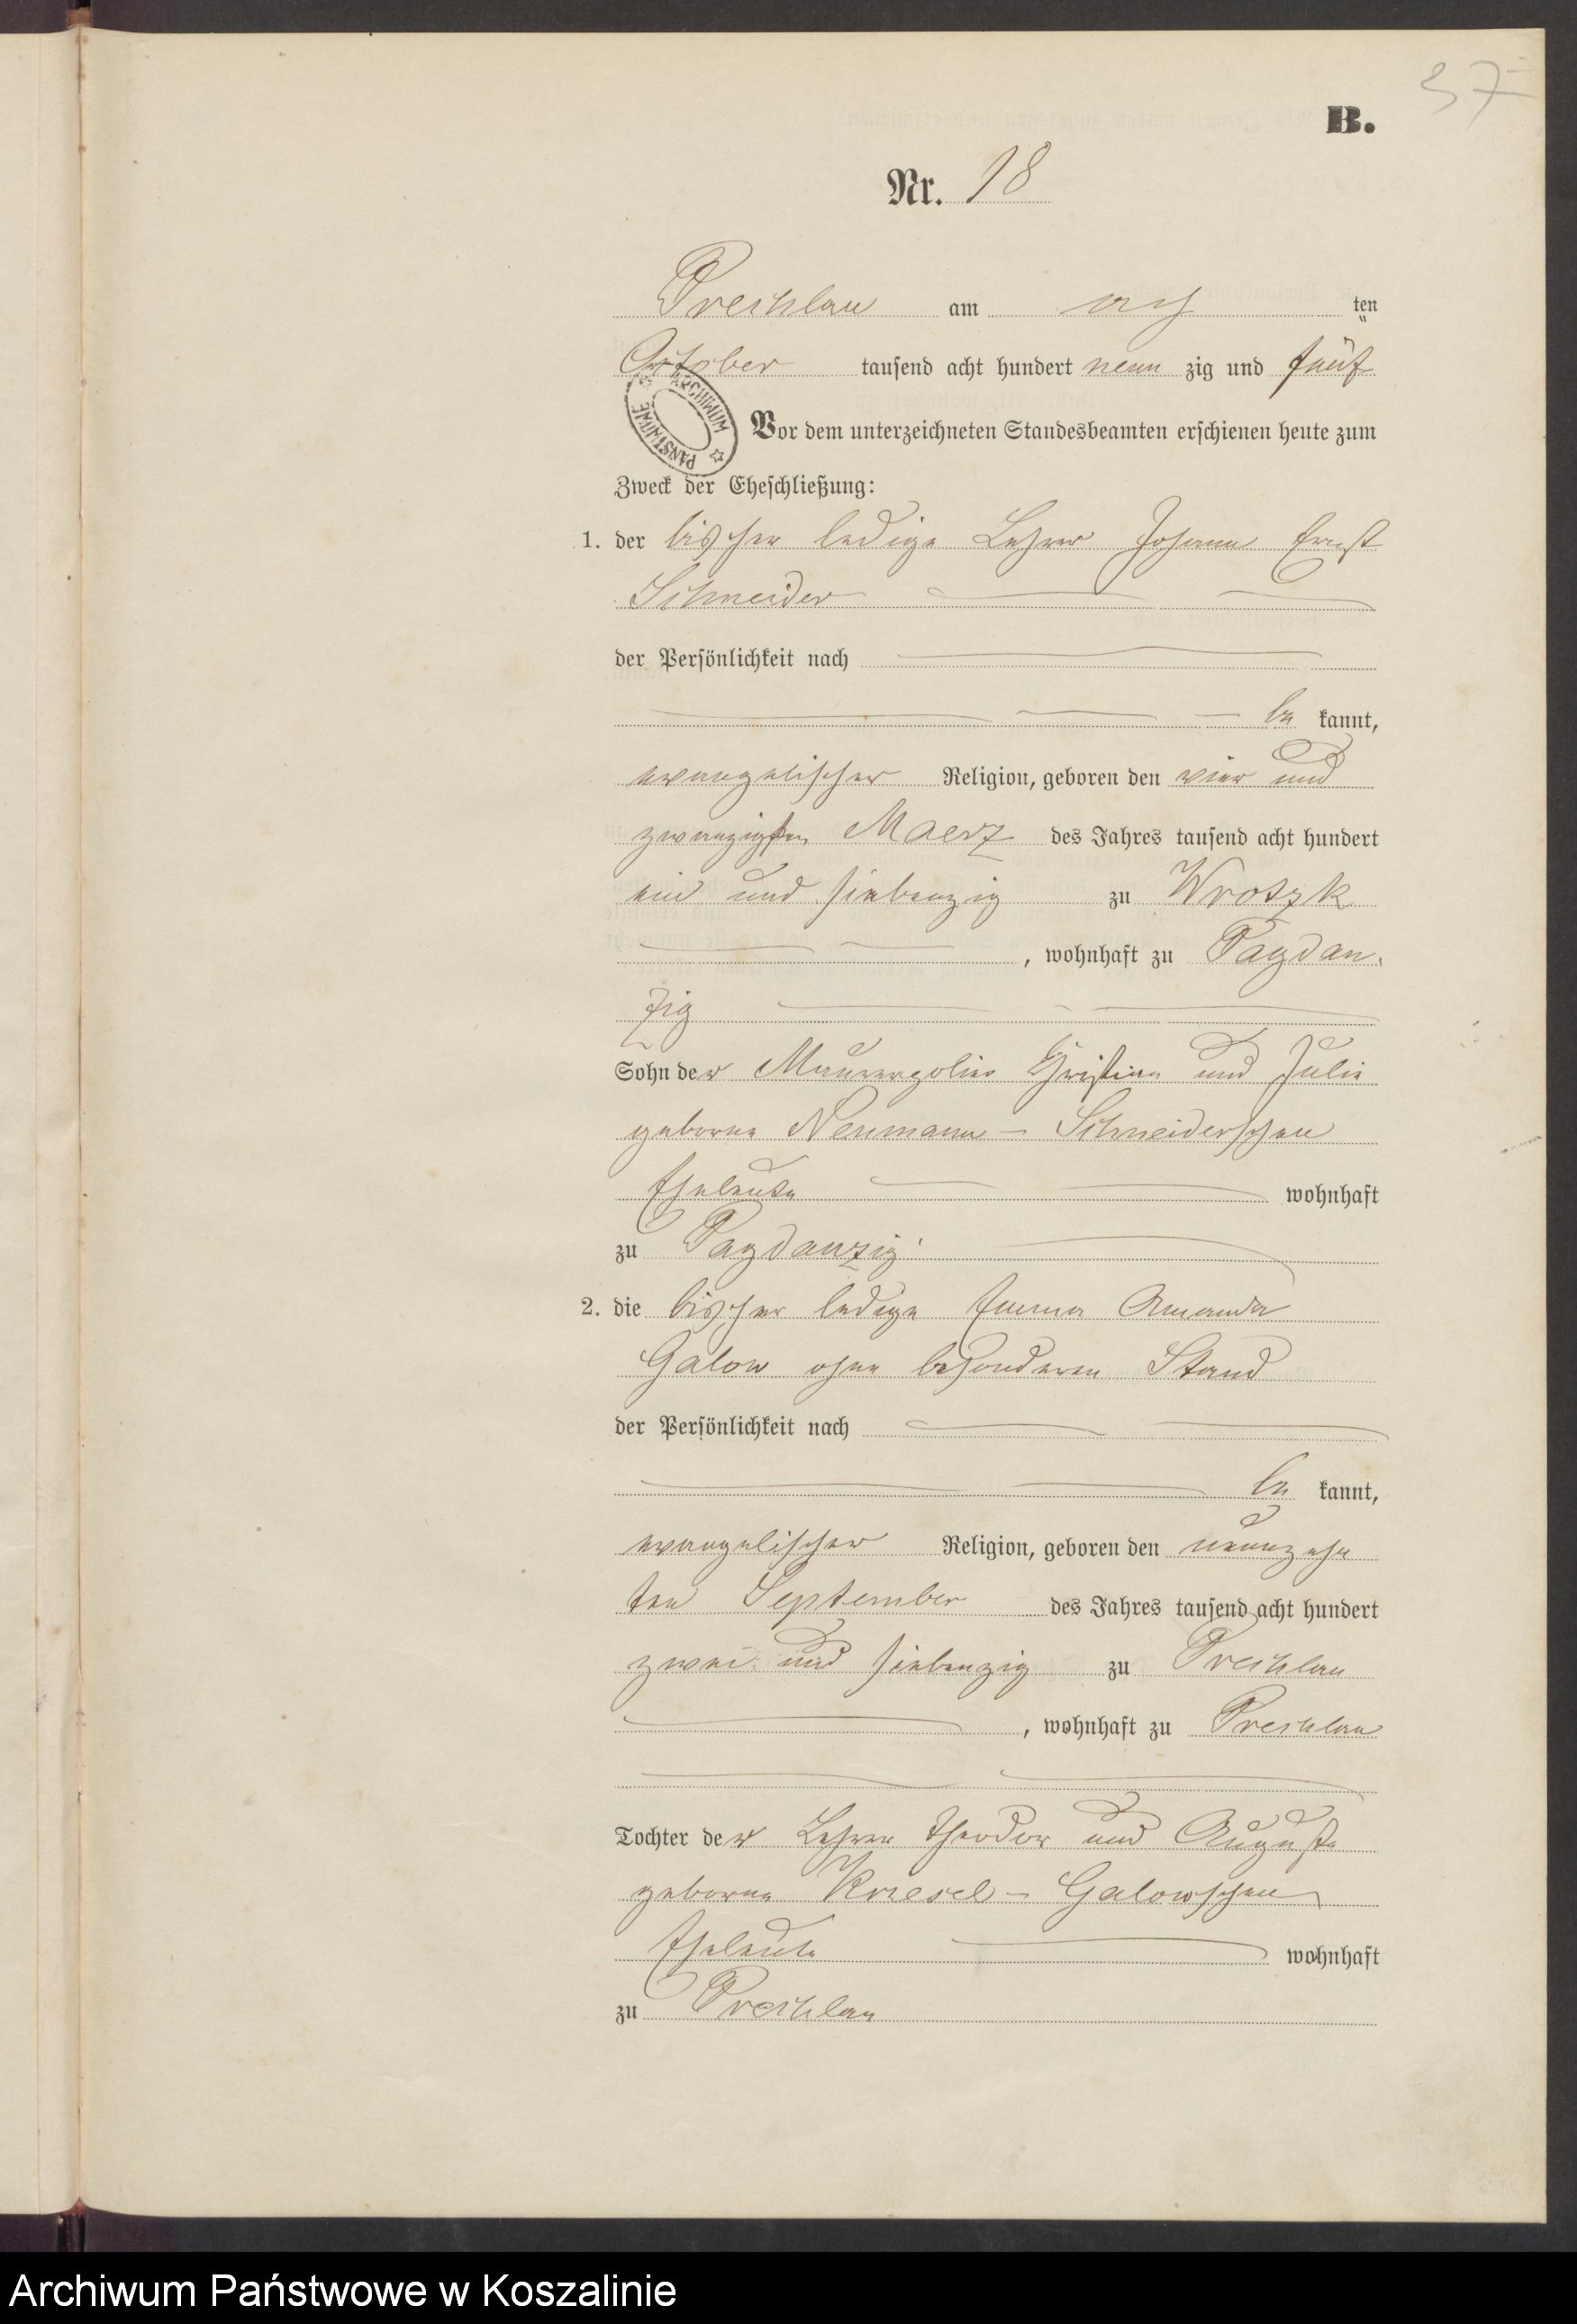 37
B.
Nr. 18
Prechlau am acht ten
October tausend acht hundert neun zig und fünf
PAŃSTWOWE ARCHIWUM
Vor dem unterzeichneten Standesbeamten erschienen heute zum
Zweck der Eheschließung:
1. der bisher ledige Lehrer Johann Ernst
Schneider
der Persönlichkeit nach
be kannt,
evangelischer Religion, geboren den vier und
zwanzigsten Maerz des Jahres tausend acht hundert
ein und siebenzig zu Wrotzk
, wohnhaft zu Pagdan-
zig
Sohn der Maurerpolier Christian und Julie
geborne Neumann - Schneiderschen
Eheleute wohnhaft
zu Pagdanzig
2. die bisher ledige Emma Amanda
Galow ohne besonderen Stand
der Persönlichkeit nach
be kannt,
evangelischer Religion, geboren den neunzehn
ten September des Jahres tausend acht hundert
zwei und siebenzig zu Prechlau
, wohnhaft zu Prechlau
Tochter der Lehrer Theodor und Auguste
geborne Kriesel - Galowschen
Eheleute wohnhaft
zu Prechlau
Archiwum Państwowe w Koszalinie